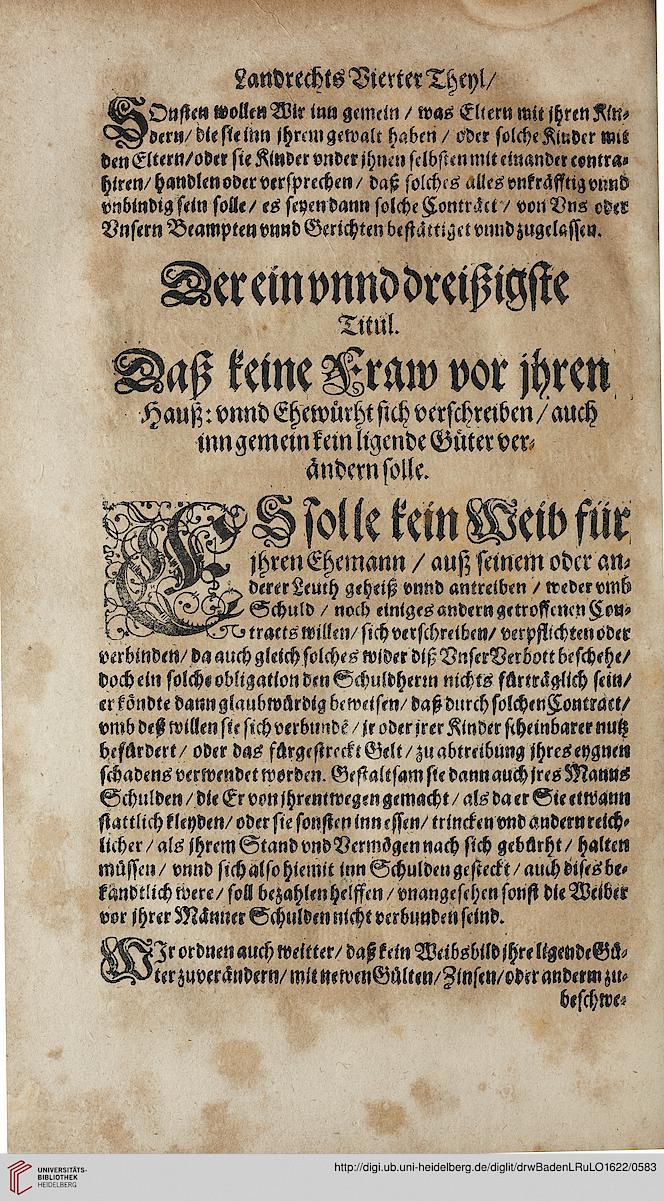 Landrechts Vierter Theyl/
SOnsten wollen Wir inn gemein / was Eltern mit jhren Kin-
dern/ die sie inn jhrem gewalt haben / oder solche Kinder mit
den Eltern/oder sie Kinder vnder jhnen selbsten mit einander contra-
hiren/ handlen oder versprechen / daß solches alles vnkräfftig vnnd
vnbindig sein solle/ es seyen dann solche Contráct / von Vns oder
Vnsern Beampten vnnd Gerichten bestättiget vnnd zugelassen.
Der ein vnnd dreißigste
Titul.
Daß keine Fraw vor jhren
Hauß: vnnd Ehewürht sich verschreiben / auch
inn gemein kein ligende Güter ver-
ändern solle.
ES solle kein Weib für
jhren Ehemann / auß seinem oder an-
derer Leuth geheiß vnnd antreiben / weder vmb
Schuld / noch einiges andern getroffenen Con-
tracts willen/ sich verschreiben/ verpflichten oder
verbinden/ da auch gleich solches wider diß Vnser Verbott beschehe/
doch ein solche obligation den Schuldherrn nichts fürträglich sein/
er köndte dann glaubwürdig beweisen/ daß durch solchen Contráct/
vmb deß willen sie sich verbundē / jr oder jrer Kinder scheinbarer nutz
befürdert / oder das fürgestreckt Gelt / zu abtreibung jhres eygnen
schadens verwendet worden. Gestaltsam sie dann auch jres Manns
Schulden / die Er von jhrentwegen gemacht / als da er Sie etwann
stattlich kleyden/ oder sie sonsten inn essen/ trincken vnd andern reich-
licher / als jhrem Stand vnd Vermögen nach sich gebürht / halten
müssen / vnnd sich also hiemit inn Schulden gesteckt / auch dises be-
kändtlich were / soll bezahlen helffen / vnangesehen sonst die Weiber
vor jhrer Männer Schulden nicht verbunden seind.
WIr ordnen auch weitter/ daß kein Weibsbild jhre ligende Gü-
ter zuverändern/ mit newen Gülten/ Zinsen/ oder anderm zu-
beschwe-
UNIVERSITÄTS-
BIBLIOTHEK
HEIDELBERG
http://digi.ub.uni-heidelberg.de/diglit/drwBadenLRuLO1622/0583